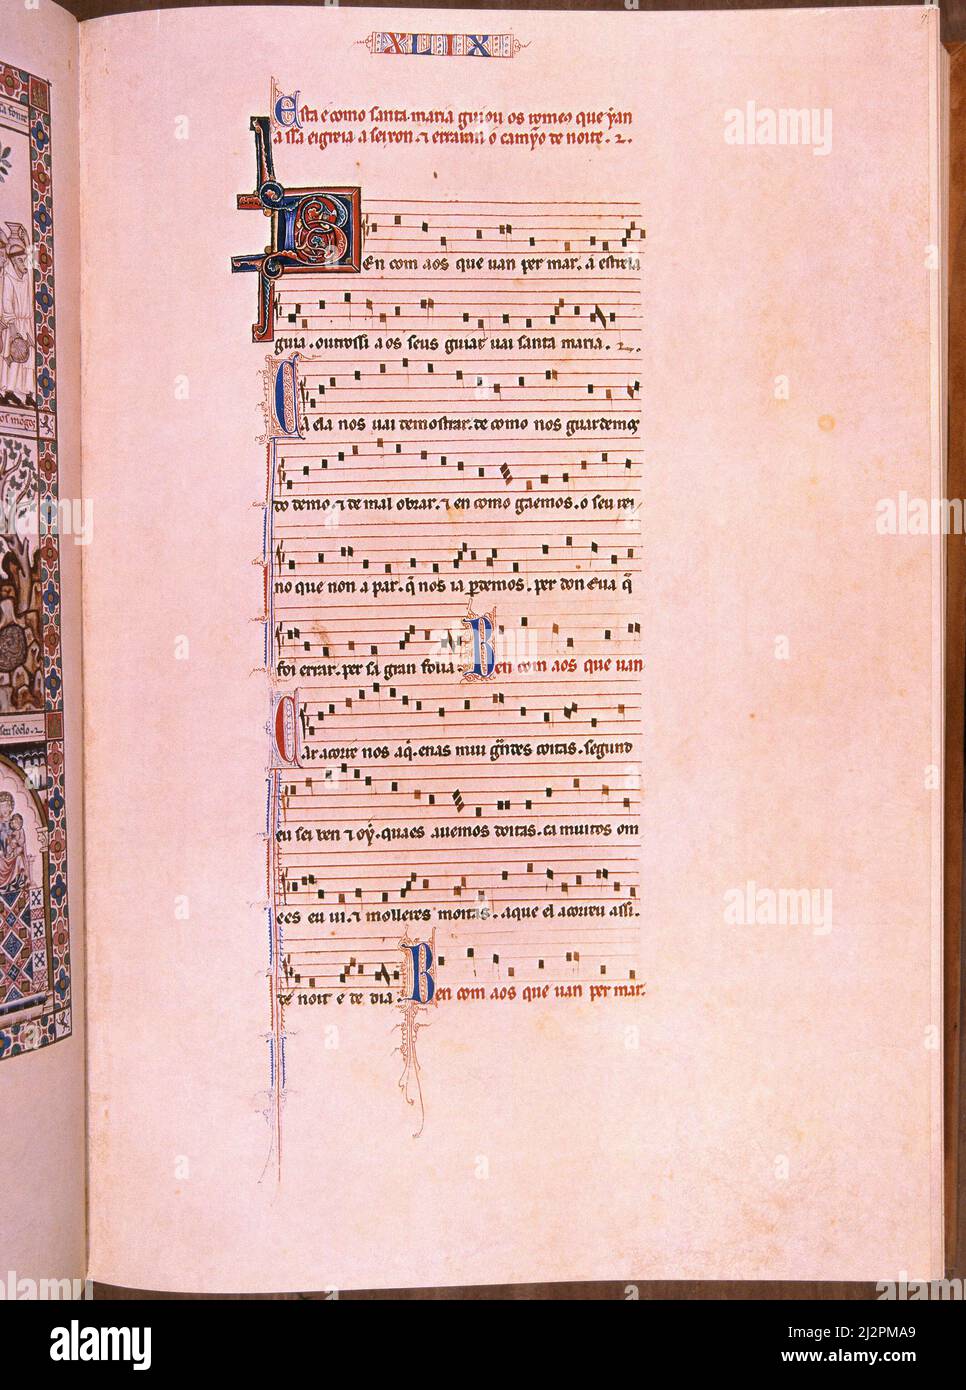 XLIX
Esta é como santa maria guiou os romeos que yan
a ssa eigreia a seixon. ⁊ erravan o camỹo de noite.
BEn com aos que van per mar. a estrela
guia. outrossi aos seus guiar vai santa maria.
Ca ela nos vai demostrar. de como nos guardemos
do demo. ⁊ de mal obrar. ⁊ en como gãemos. o seu rei
no que non a par. q̃ nos ia ꝑdemos. per don Eva q̃
foi errar. per sa gran folia. Ben com aos que van
Car acorre nos aq̃. enas mui
eu sei ben ⁊ oỹ. quaes avemos doitas. ca muitos om
ees eu vi. ⁊ molleres moitas. a que el acorreu assi.
de noit e de dia. Ben com aos que van per mar.
alamy
Image ID: J2PMA9
www.alamy.com